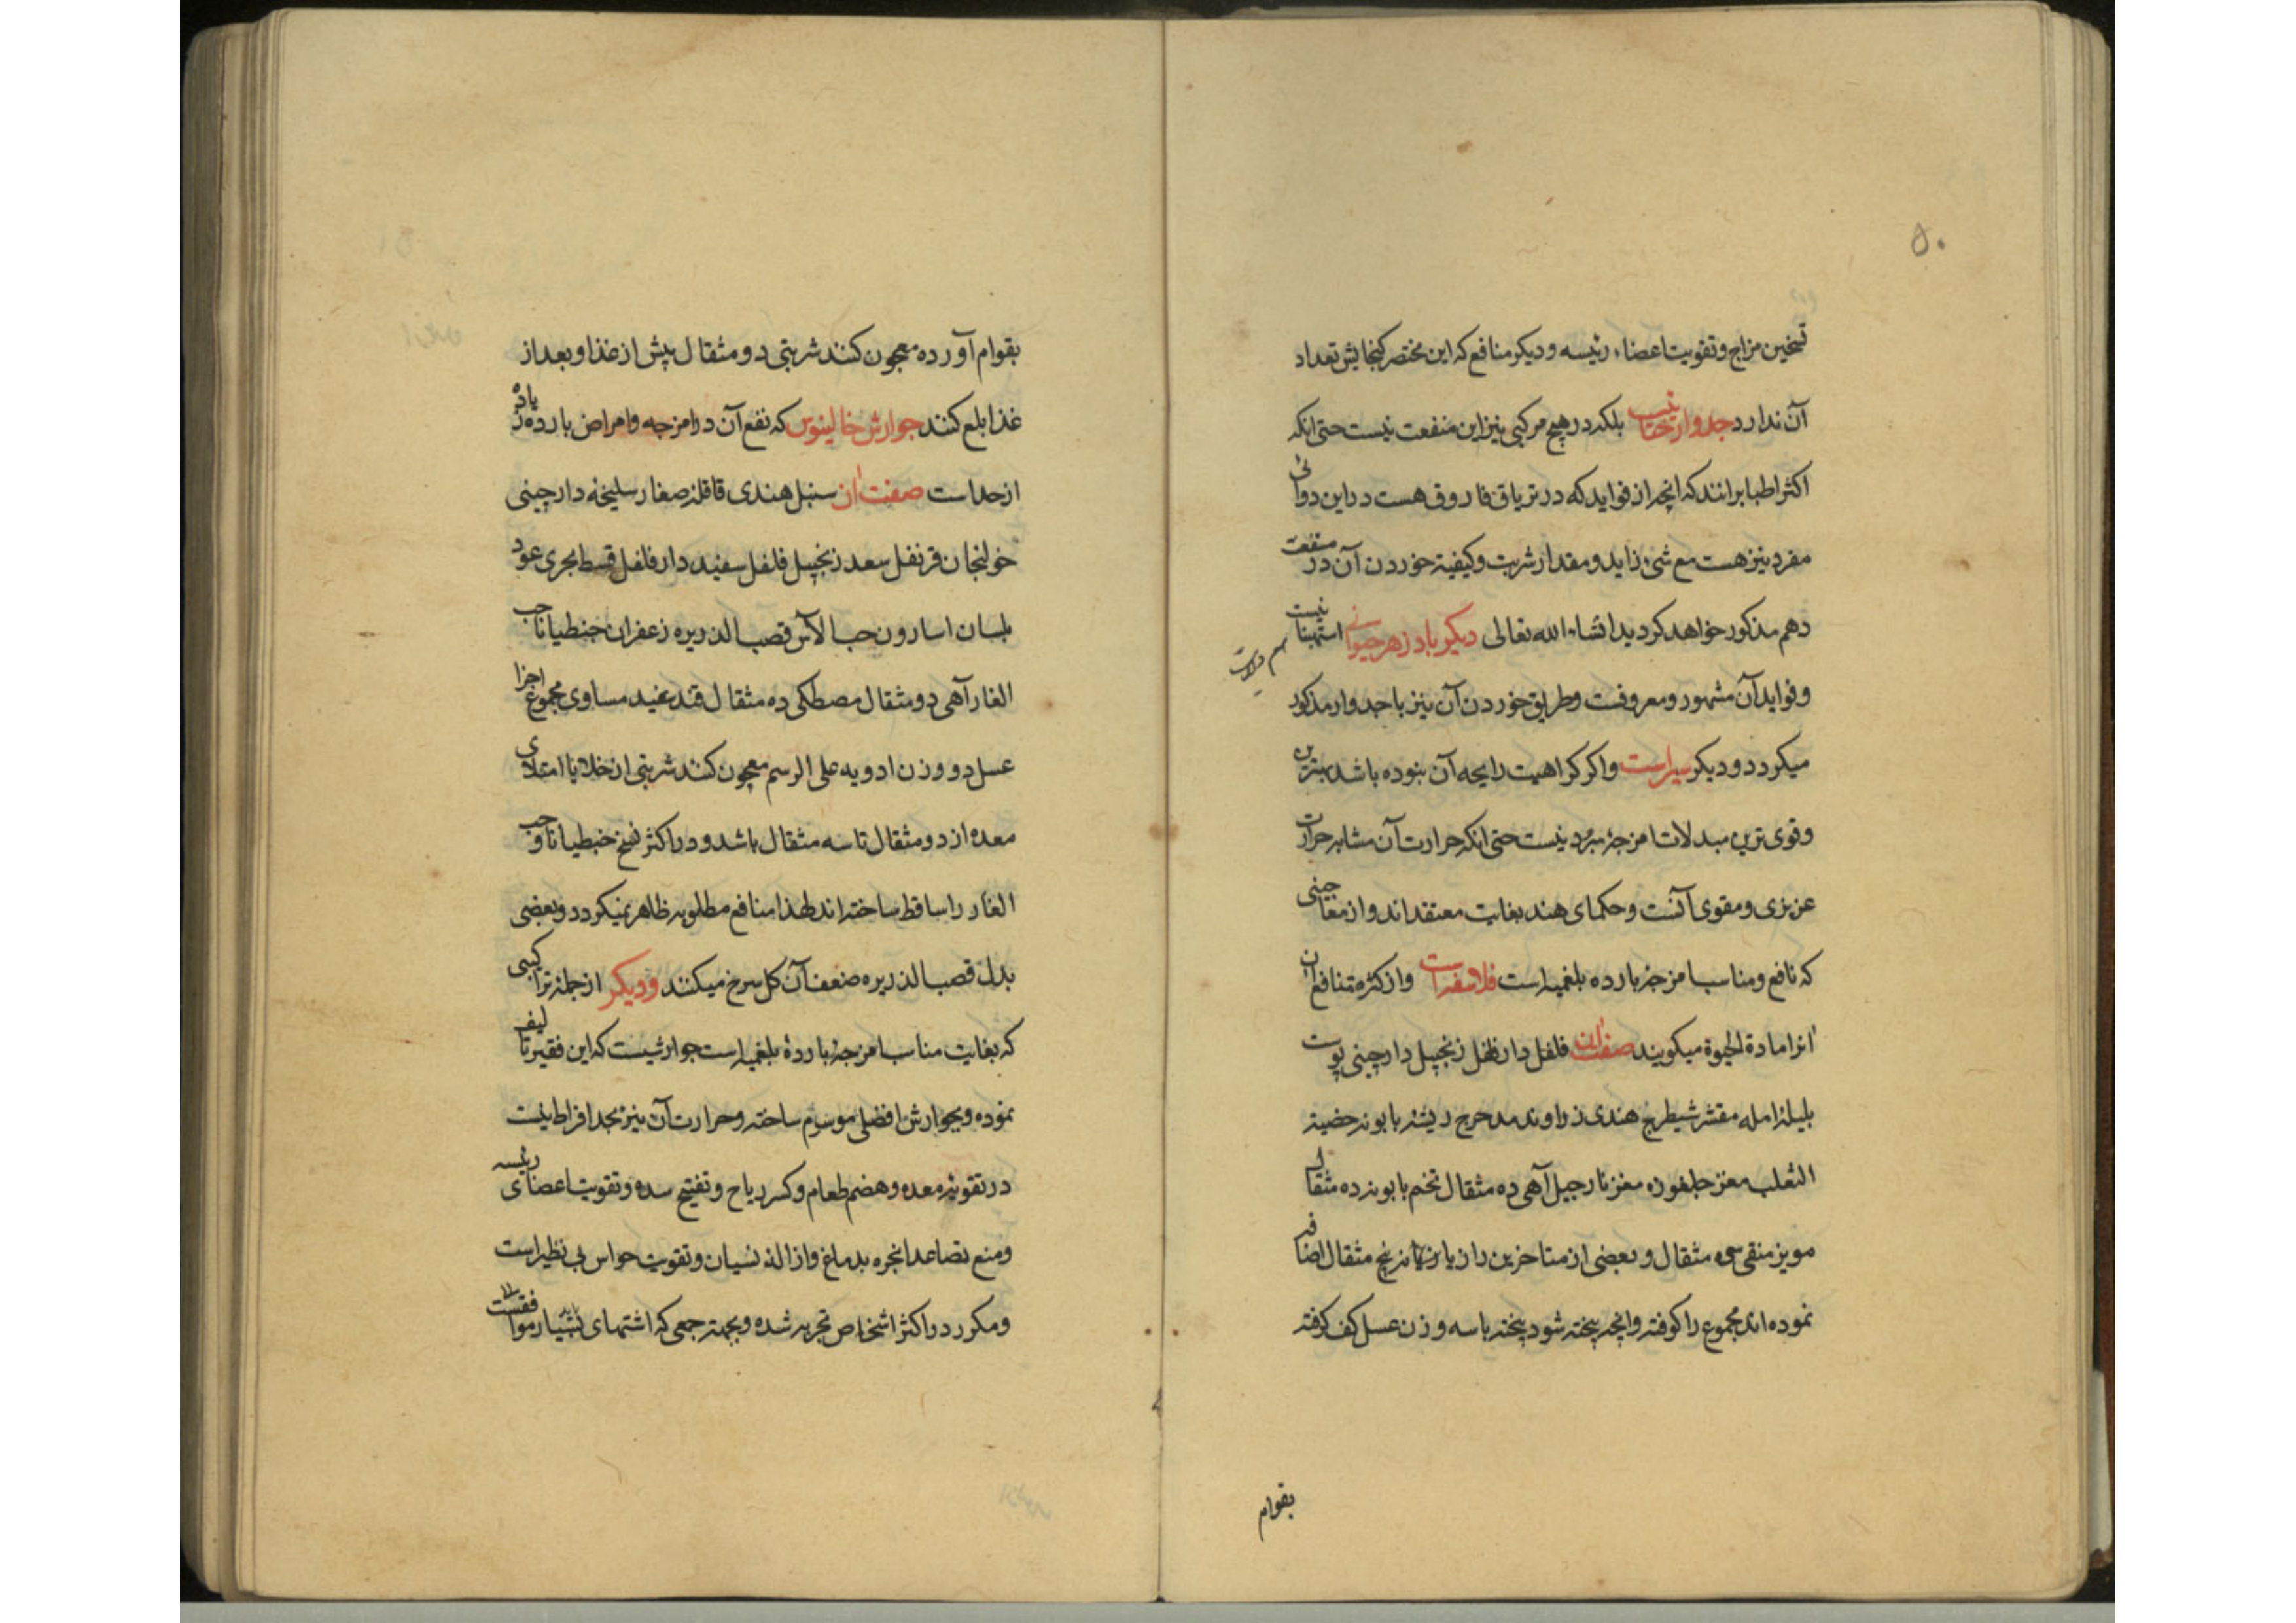 ۵۰
تسخین مزاج و تقویت اعضاء رئیسه و دیکر منافع که این مختصر کنجایش تعداد
آن ندارد جدوار ختایست بلکه در هیچ مرکبی نیز این منفعت نیست حتی انکه
اکثر اطبا برانند که انچه از فواید که در تریاق فاروق هست در این دوائی
مفرد نیز هست مع شیء زاید و مقدار شربت و کیفیة خوردن آن در منفعت
دهم مذکور خواهد کردید انشاء الله تعالی دیکر پادزهر حیوانی است
و فواید آن مشهور و معروفست و طریق خوردن آن نیز با جدوار مذکور
میکردد و دیکر سیر است و اکر کراهیت رایحه آن نبوده باشد بهترین
و قوی ترین مبدلات امزجهٔ مبرد نیست حتی انکه حرارت آن مشابه حرارت
عزیزی و مقوی آنست و حکمای هند بغایت معتقداند و از معاجینی
که نافع و مناسب امزجهٔ بارده بلغمیه است فلاسفه است و از کثرة منافع ان
انرا مادة الحیوة میکویند صفت ان فلفل دارفلفل زنجبیل دارچینی پوست
بلیله امله مقشر شیطرج هندی زراوند مدحرج ریشه بابونه خصیة
الثعلب مغز جلغوزه مغز نارجیل آهی ده مثقال تخم بابونه ده مثقال
مویز منقی سی مثقال و بعضی از متاخرین رازیانه پنج مثقال اضافه
نموده اند مجموع را کوفته و انچه پیخته شود پیخته با سه وزن عسل کف کرفته
بقوام
بقوام آورده معجون کنند شربتی دو مثقال پیش از غذا و بعد از
غذا بلع کنند جوارش خالینوس که نفع آن در امزجه و امراض بارده زیاده
از حد است صفت ان سنبل هندی قاقله صغار سلیخه دارچینی
خولنجان قرنفل سعد زنجبیل فلفل سفید دارفلفل قسط بحری عود
بلسان اسارون حب الآس قصب الذریره زعفران جنطیانا حب
الغار آهی دو مثقال مصطکی ده مثقال قند سفید مساوی مجموع اجزا
عسل دو وزن ادویه علی الرسم معجون کنند شربتی از خلا یا امتلای
معده از دو مثقال تا سه مثقال باشد و در اکثر نسخ خبطیانا و حب
الغار را ساقط ساخته اند لهذا منافع مطلوبه ظاهر نمیکردد و بعضی
بدل قصب الذریره ضعف آن کل سرخ میکنند و دیکر از جمله تراکیبی
که بغایت مناسب امزجهٔ باردهٔ بلغمیه است جوارشیست که این فقیر تالیف
نموده و بجوارش افضلی موسوم ساخته و حرارت آن نیز بحد افراط نیست
در تقویة معده و هضم طعام و کسر ریاح و تفتیح سده و تقویت اعضای رئیسه
و منع تصاعد انجره بدماغ و ازالهٔ نسیان و تقویت حواس بی نظیر است
و مکرر در اکثر اشخاص تجربه شده و بجهة جمعی که اشتهای بسیار موافقست